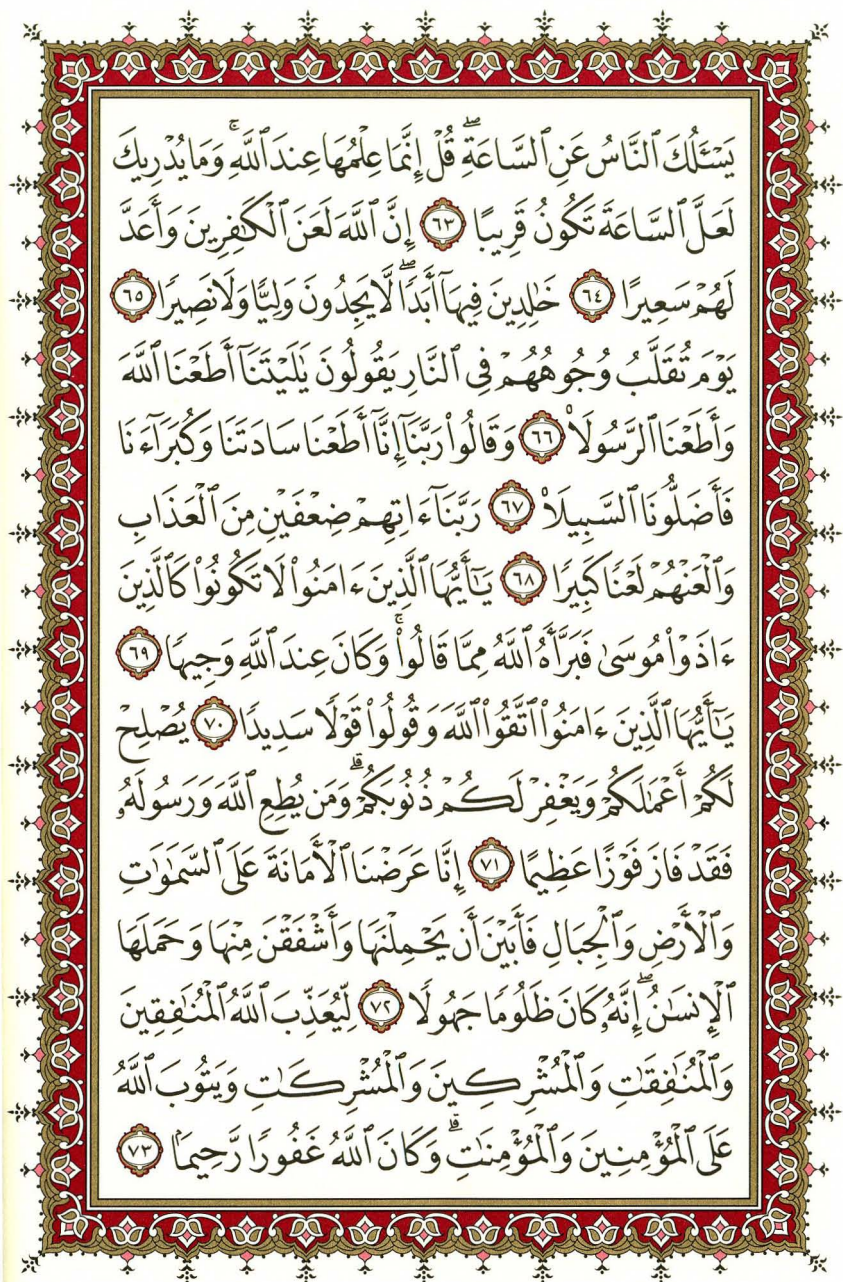 يَسْـَٔلُكَ ٱلنَّاسُ عَنِ ٱلسَّاعَةِۖ قُلْ إِنَّمَا عِلْمُهَا عِندَ ٱللَّهِۚ وَمَا يُدْرِيكَ
لَعَلَّ ٱلسَّاعَةَ تَكُونُ قَرِيبًا ٦٣ إِنَّ ٱللَّهَ لَعَنَ ٱلْكَٰفِرِينَ وَأَعَدَّ
لَهُمْ سَعِيرًا ٦٤ خَٰلِدِينَ فِيهَآ أَبَدًاۖ لَّا يَجِدُونَ وَلِيًّا وَلَا نَصِيرًا ٦٥
يَوْمَ تُقَلَّبُ وُجُوهُهُمْ فِى ٱلنَّارِ يَقُولُونَ يَٰلَيْتَنَآ أَطَعْنَا ٱللَّهَ
وَأَطَعْنَا ٱلرَّسُولَا۠ ٦٦ وَقَالُوا۟ رَبَّنَآ إِنَّآ أَطَعْنَا سَادَتَنَا وَكُبَرَآءَنَا
فَأَضَلُّونَا ٱلسَّبِيلَا۠ ٦٧ رَبَّنَآ ءَاتِهِمْ ضِعْفَيْنِ مِنَ ٱلْعَذَابِ
وَٱلْعَنْهُمْ لَعْنًا كَبِيرًا ٦٨ يَٰٓأَيُّهَا ٱلَّذِينَ ءَامَنُوا۟ لَا تَكُونُوا۟ كَٱلَّذِينَ
ءَاذَوْا۟ مُوسَىٰ فَبَرَّأَهُ ٱللَّهُ مِمَّا قَالُوا۟ۚ وَكَانَ عِندَ ٱللَّهِ وَجِيهًا ٦٩
يَٰٓأَيُّهَا ٱلَّذِينَ ءَامَنُوا۟ ٱتَّقُوا۟ ٱللَّهَ وَقُولُوا۟ قَوْلًا سَدِيدًا ٧٠ يُصْلِحْ
لَكُمْ أَعْمَٰلَكُمْ وَيَغْفِرْ لَكُمْ ذُنُوبَكُمْۗ وَمَن يُطِعِ ٱللَّهَ وَرَسُولَهُۥ
فَقَدْ فَازَ فَوْزًا عَظِيمًا ٧١ إِنَّا عَرَضْنَا ٱلْأَمَانَةَ عَلَى ٱلسَّمَٰوَٰتِ
وَٱلْأَرْضِ وَٱلْجِبَالِ فَأَبَيْنَ أَن يَحْمِلْنَهَا وَأَشْفَقْنَ مِنْهَا وَحَمَلَهَا
ٱلْإِنسَٰنُۖ إِنَّهُۥ كَانَ ظَلُومًا جَهُولًا ٧٢ لِّيُعَذِّبَ ٱللَّهُ ٱلْمُنَٰفِقِينَ
وَٱلْمُنَٰفِقَٰتِ وَٱلْمُشْرِكِينَ وَٱلْمُشْرِكَٰتِ وَيَتُوبَ ٱللَّهُ
عَلَى ٱلْمُؤْمِنِينَ وَٱلْمُؤْمِنَٰتِۗ وَكَانَ ٱللَّهُ غَفُورًا رَّحِيمًۢا ٧٣